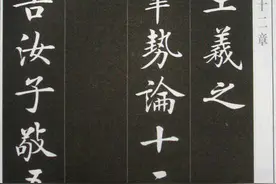 十二章
王羲之
筆勢論十二
告汝子敬